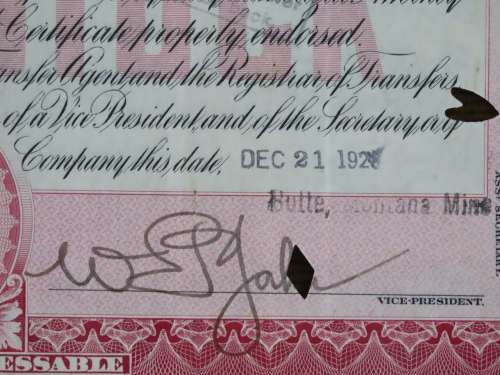 Certificate properly endorsed.
Transfer Agent and the Registrar of Transfers
of a Vice President, and of the Secretary, or of
Company this date, DEC 21 192
Butte, Montana Mine
VICE-PRESIDENT.
ESSABLE